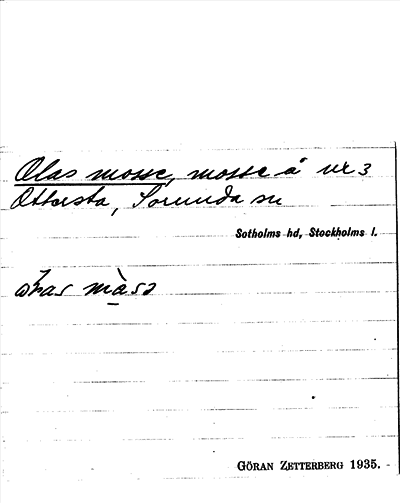 Olas mosse, mosse å nr 3
Ottersta, Sorunda sn
Sotholms hd, Stockholms l.
màsə
GÖRAN ZETTERBERG 1935.